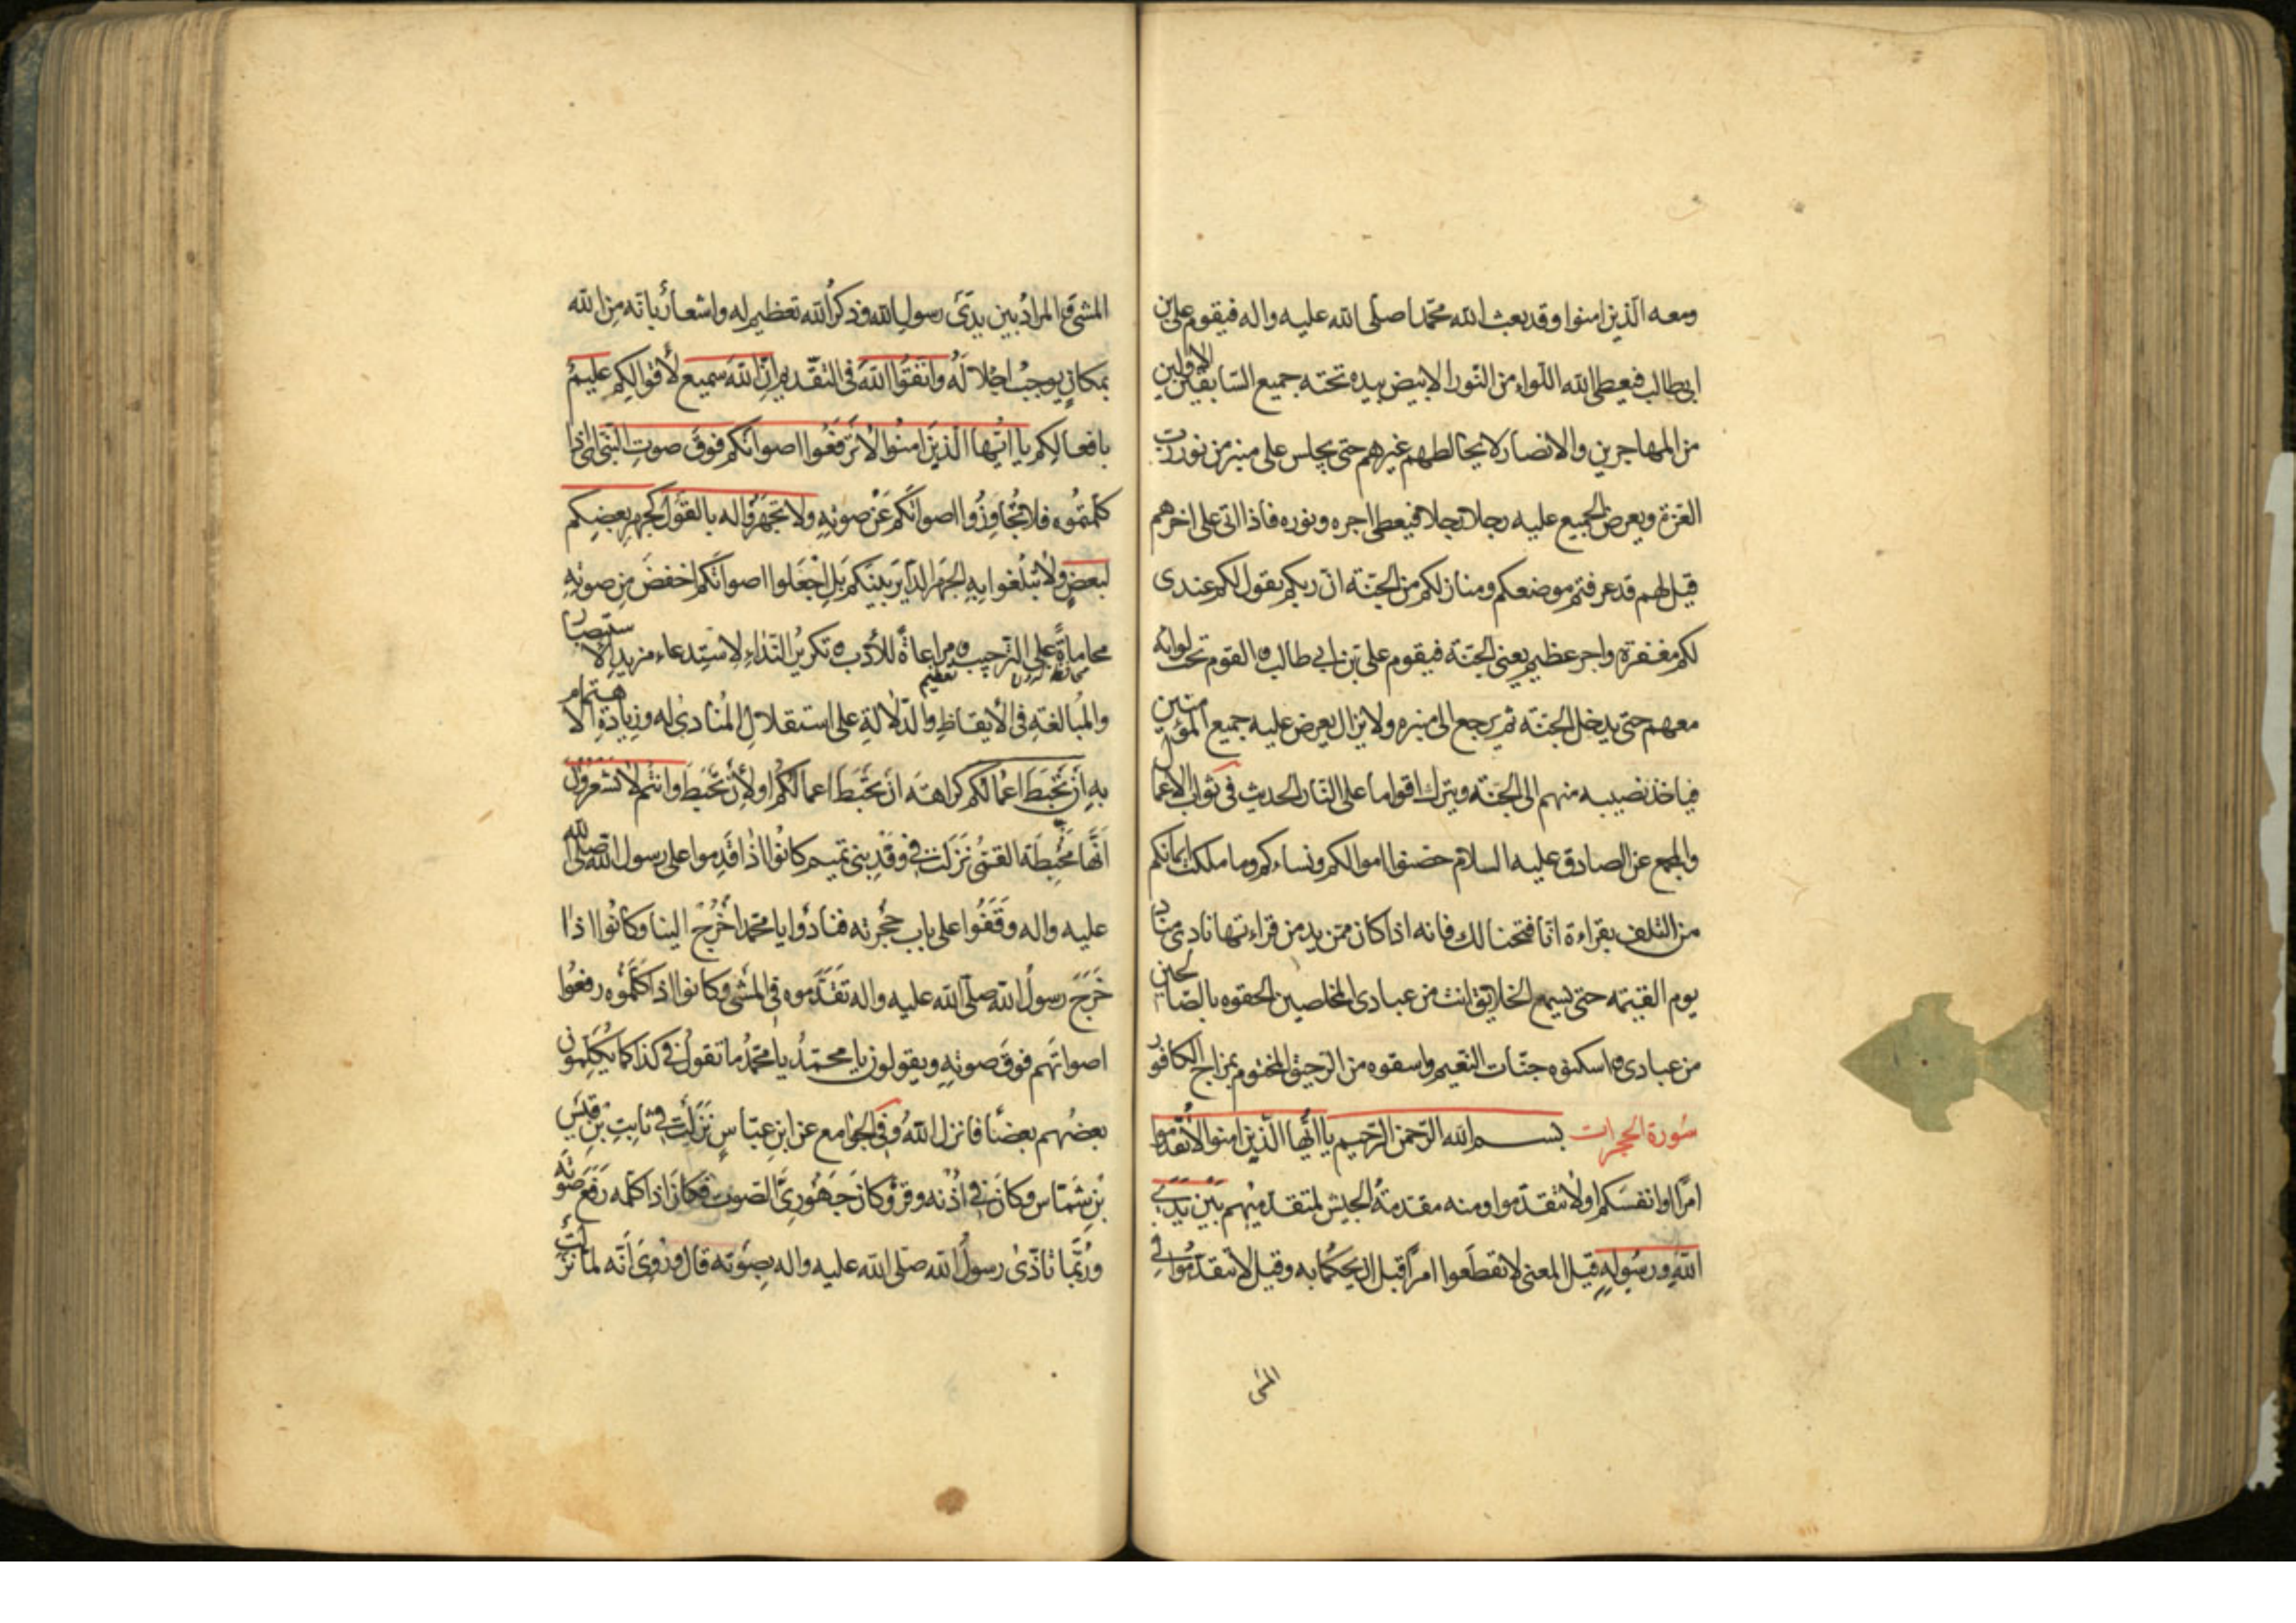 ومعه الذين امنوا وقد بعث الله محمّدا صلى الله عليه واله فيقوم على بن
ابى طالب فيعطى الله اللواء من النّور الابيض بيده تحته جميع السّابقين الاولين
من المهاجرين والانصار لا يخالطهم غيرهم حتى يجلس على منبر من نور ربّ
العزة ويعرض الجميع عليه رجلا رجلا فيعطى اجره ونوره فاذا اتى على اخرهم
قيل لهم قد عرفتم موضعكم ومنازلكم من الجنّة انّ ربكم يقول لكم عندى
لكم مغفرة واجر عظيم يعنى الجنّة فيقوم على بن ابى طالب ه القوم تحت لوائه
معهم حتى يدخل الجنّة ثم يرجع الى منبره ولا يزال يعرض عليه جميع المؤمنين
فياخذ نصيبه منهم الى الجنة ويترك اقواما على النّار الحديث فى ثواب الاعمال
والمجمع عن الصادق عليه السلام حصنوا اموالكم ونساءكم وما ملكت ايمانكم
من التلف بقراءة انّا فتحنا لك فانه اذا كان ممّن يدمن قراءتها نادى مناد
يوم القيمة حتى يسمع الخلايق انت من عبادى المخلصين الحقوه بالصّالحين
من عبادى ه اسكنوه جنّات النّعيم واسقوه من الرّحيق المختوم بمزاج الكافور
سُورة الحجرات بسم الله الرّحمن الرّحيم يا أيّها الّذين امنوا لا تُقدّموا
امرًا او انفسَكم او لا تتقدّموا ومنه مقدّمة الجيش لمتقدّميهم بَيْنَ يَدَىِ
اللهِ ورسُولِهِ قيل المعنى لا تقطَعوا امرًا قبل ان يحكما به وقيل لا تتقدّمُوا فى
المشى
المشى و المرادُ بين يَدَىْ رسولِ الله وذكرُ الله تعظيم له واشعارٌ بانّه مِنَ الله
بمكانٍ يوجبُ اجلالَهُ واتّقُوا اللهَ فى التقّديم انّ اللهَ سميع لأقوالِكم عليمٌ
بافعالِكم يا أيّها الّذينَ امنُوا لا تَرفَعُوا اصواتَكم فوقَ صوتِ النّبىّ اى اذا
كلّمتُموه فلا تُجاوِزُوا اصواتَكُم عَنْ صوتِهِ ولا تجهَرُوا له بالقَوْلِ كجهرِ بعضِكم
لبعضٍ ولا تبلُغوا به الجَهرَ الدّائرَ بينَكم بَلِ اجْعَلوا اصواتَكم اخفضَ مِن صوتِهِ
محاماةً على الترحيب ه مراعاةً للأدب ه تكريرُ النّداءِ لاستِدعاء مزيدِ الاستبصار
والمُبالغة فى الأيقاظِ والدّلالةِ على استقلالِ المُنادى له وزيادةِ الاهتمام
به أنْ تحْبَطَ اعمالُكم كراهة أنْ تَحْبَطَ اعمالُكُم او لأنْ تَحْبَطَ وانتُم لا تشعرُونَ
أنّها مُحْبِطَة القمّى نزلَت فى وَفْدِ بنى تميم كانُوا اذا قَدِموا على رسول الله صلّى الله
عليه واله وَقَفُوا على بابِ حُجْرته فنادَوْا يا محمّد اُخْرُج الينا وكانُوا اذا
خَرَجَ رسولُ الله صلّى الله عليه واله تقدَّموه فى المشى وكانوا اذا كلّمُوه رفعُوا
اصواتَهم فوقَ صوتِهِ ويقولون يا محمّدُ يا محمّدُ ما تقولُ فى كذا كما يُكلّمون
بعضُهم بعضًا فانزل اللهُ وفى الجوامع عن ابنِ عبّاسٍ نَزَلَت فى ثابِتِ بْنِ قَيْسِ
بْنِ شَمّاس وكانَ فى اُذُنه وقرٌ وكانَ جَهْورىَّ الصّوت فكانَ اذا كلّمه رَفَعَ صَوْتَه
ورُبّما تاذّى رسولُ الله صلّى الله عليه واله بصَوْته قال ورُوِىَ أنّه لمّا نزلَت